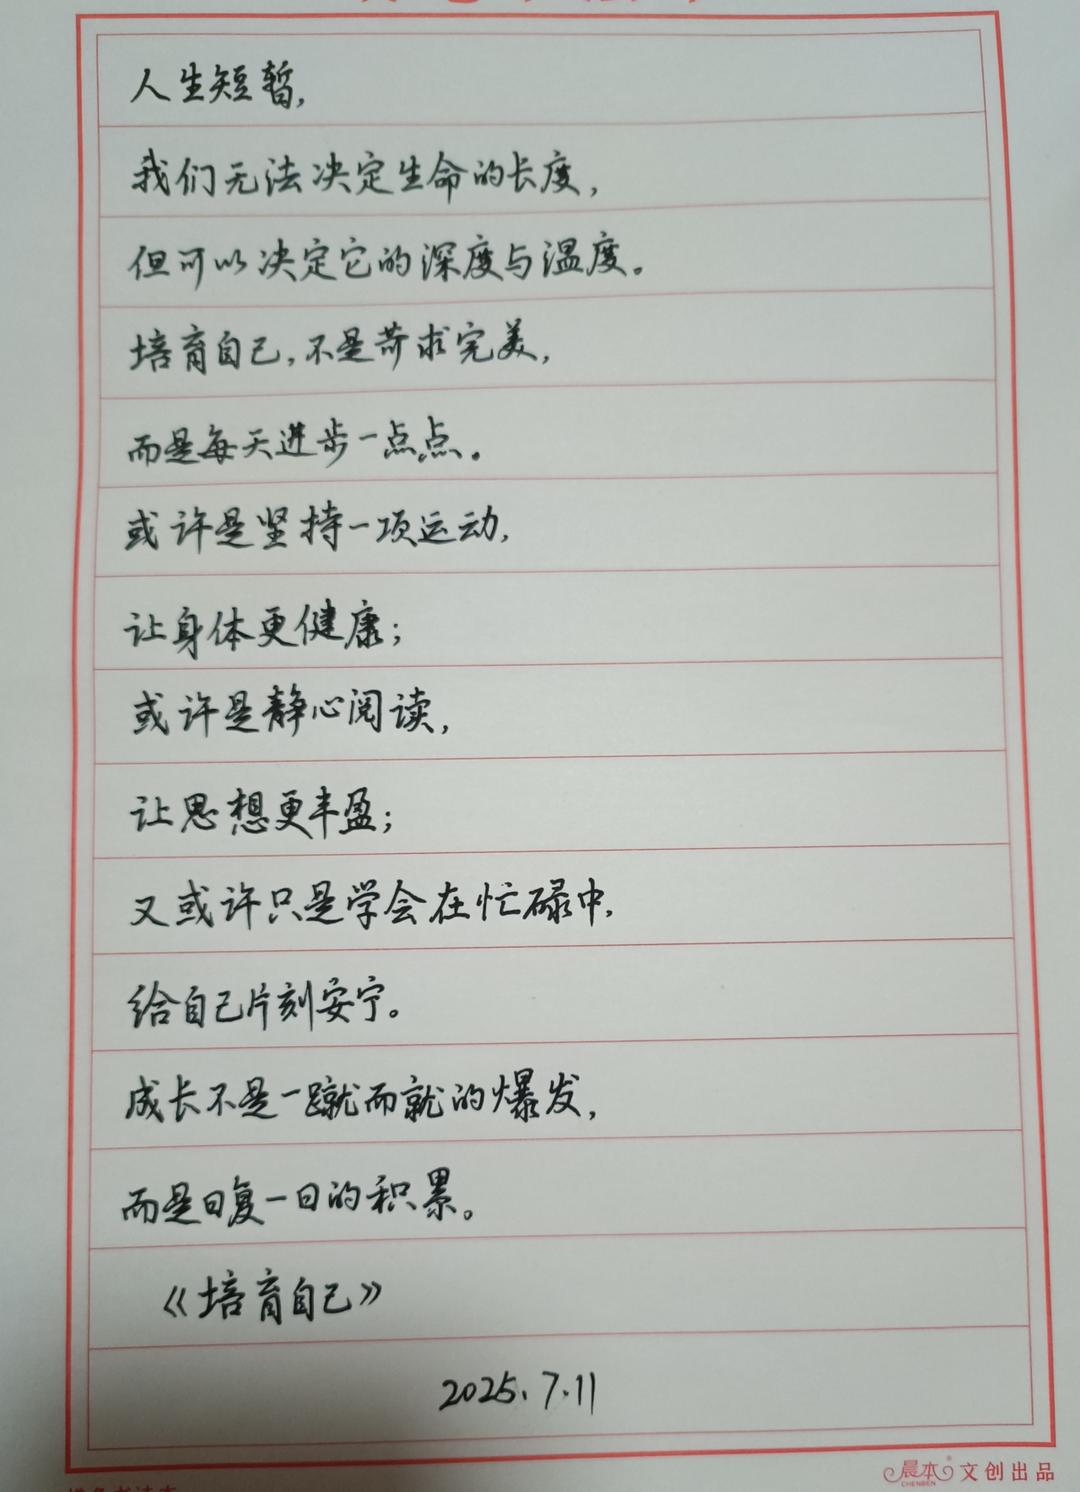 人生短暂,
我们无法决定生命的长度,
但可以决定它的深度与温度。
培育自己,不是苛求完美,
而是每天进步一点点。
或许是坚持一项运动,
让身体更健康;
或许是静心阅读,
让思想更丰盈;
又或许只是学会在忙碌中,
给自己片刻安宁。
成长不是一蹴而就的爆发,
而是日复一日的积累。
《培育自己》
2025.7.11
晨本 文创出品
CHENBEN